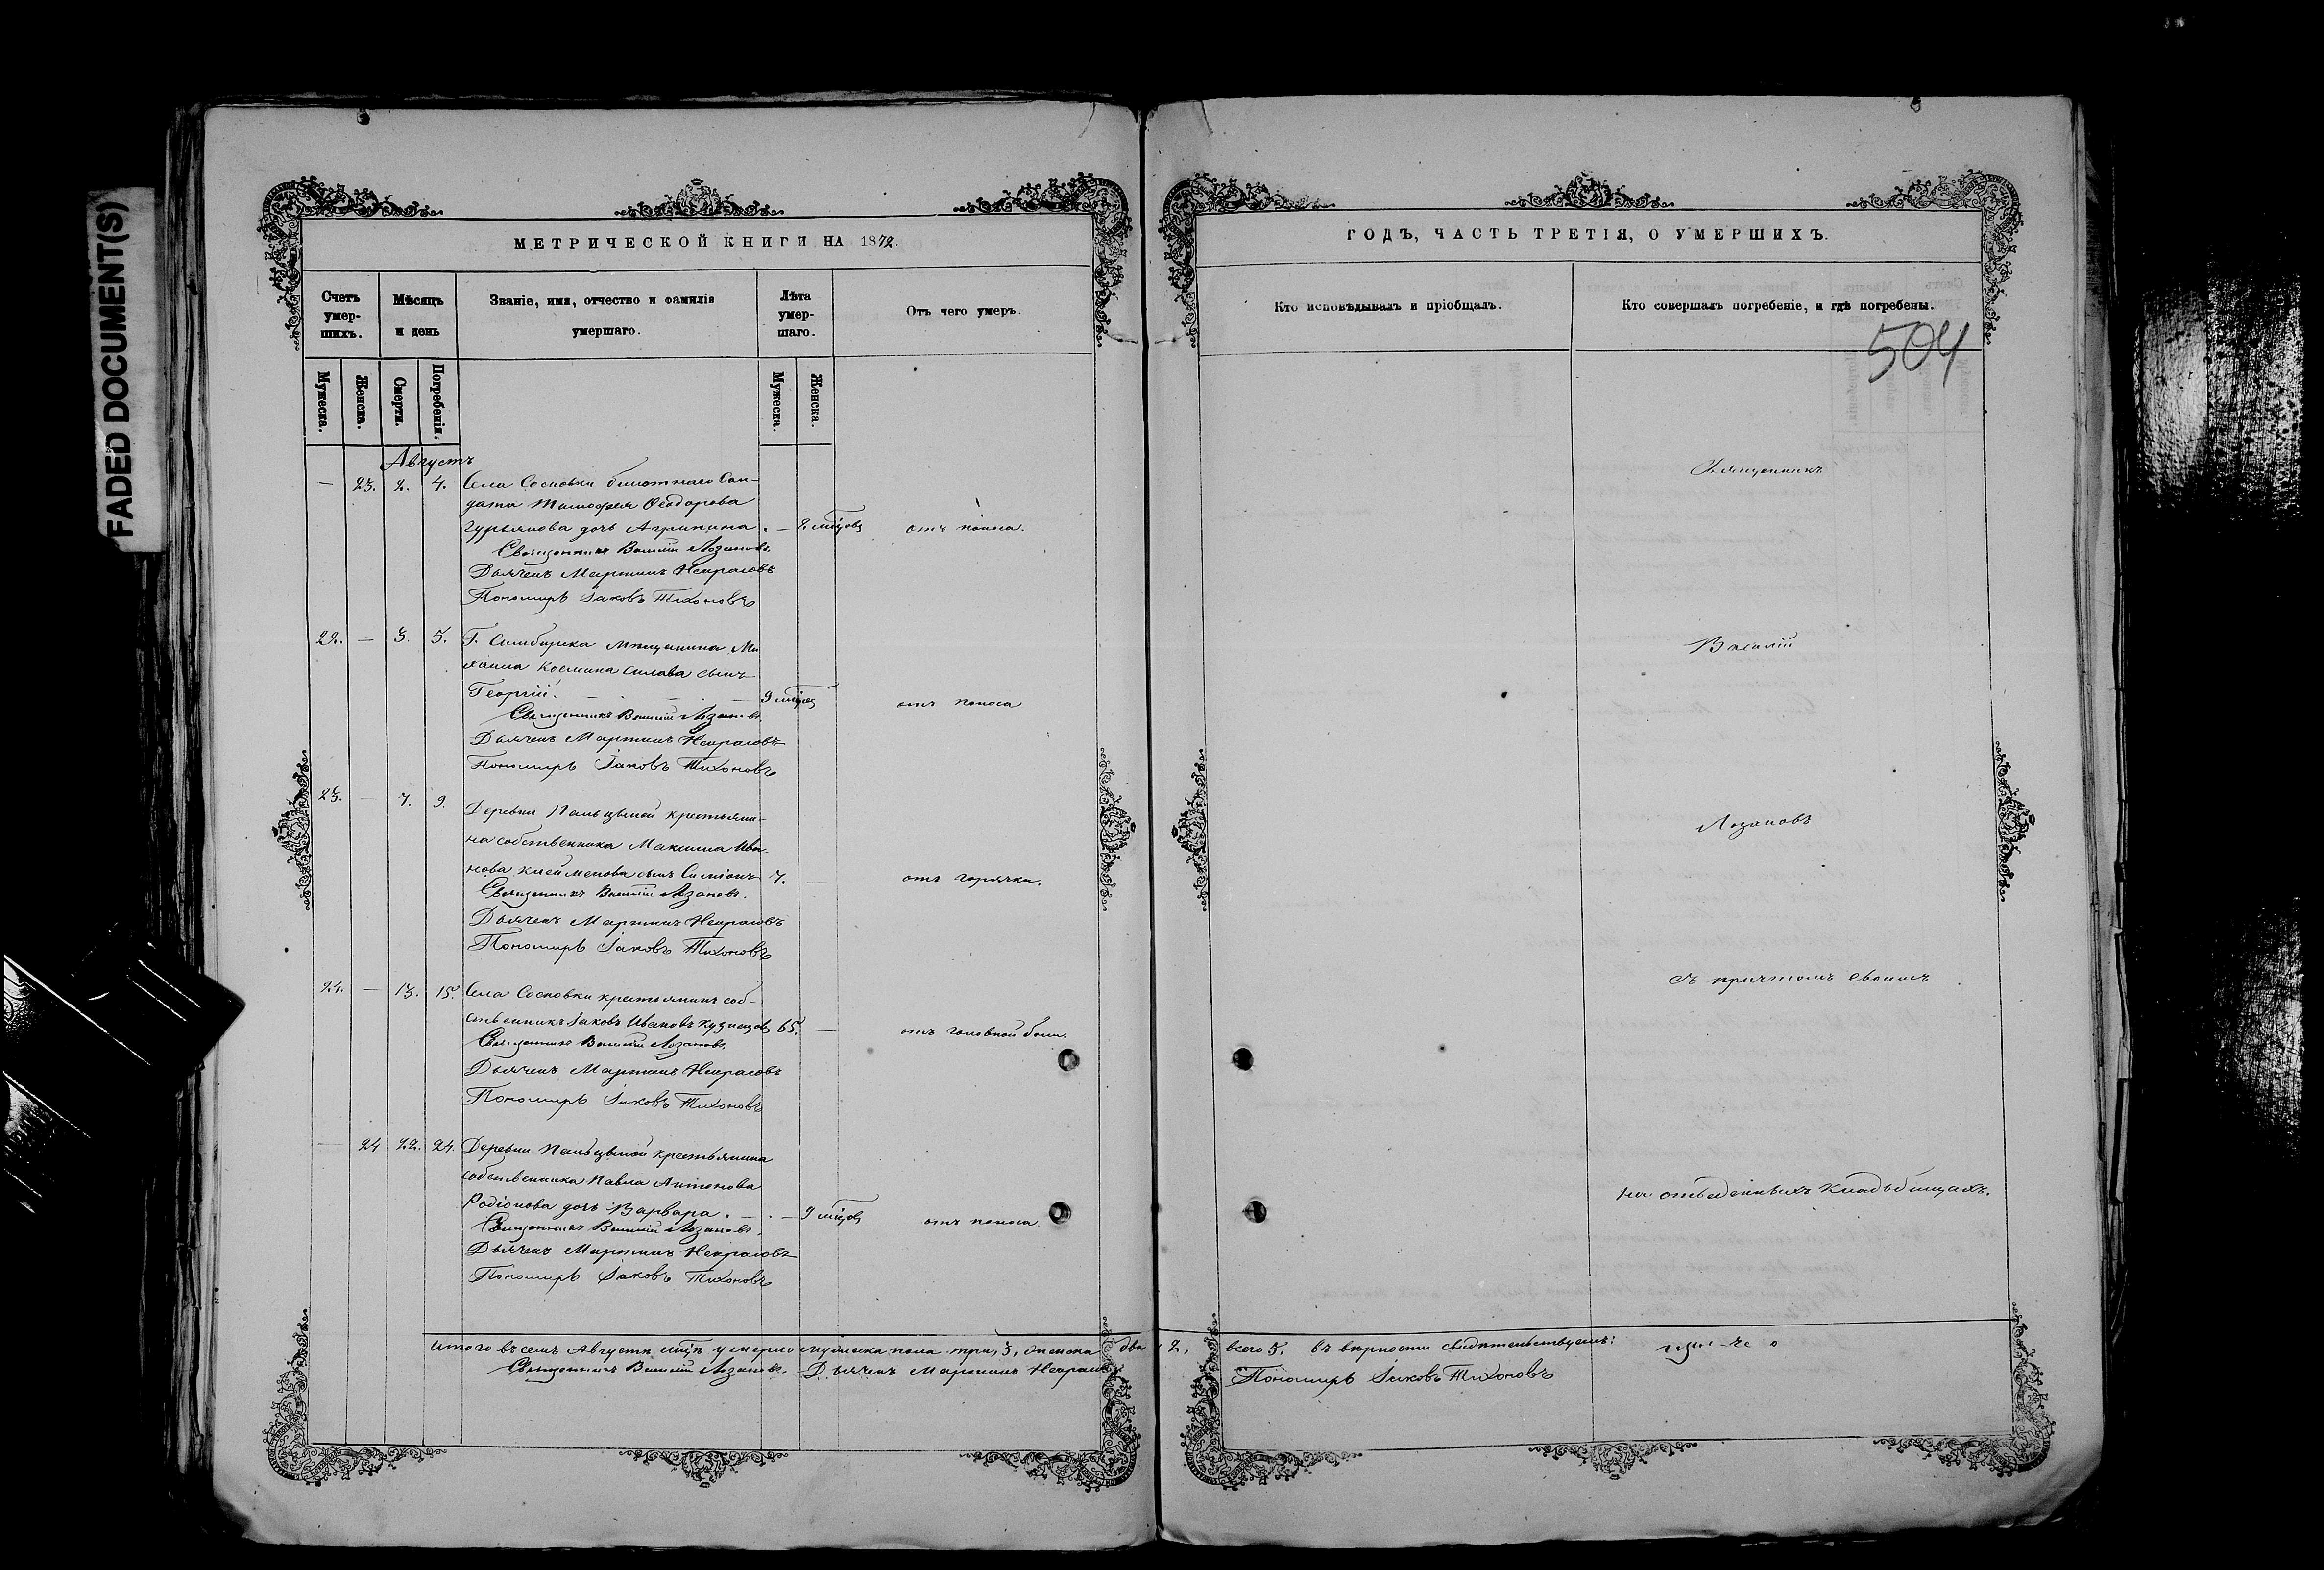 FADED DOCUMENT(S)
МЕТРИЧЕСКОЙ КНИГИ НА 1872.
Счетъ умер-шихъ.
Мѣсяцъ и день
Званіе, имя, отчество и фамилія умершаго.
Лѣта умер-шаго.
Отъ чего умеръ.
Мужеска.
Женска.
Смерти.
Погребенія.
Мужеска.
Женска.
Августъ
— 23. 2. 4. Села Сосновки билетнаго Сол-
дата Тимофея Ѳеодорова
Гурьянова дочь Агрипина . — 2 мѣцовъ отъ поноса.
Священникъ Василій Лозановъ.
Дьячекъ Мартинъ Некрасовъ
Пономарь Іаковъ Тихоновъ
22. — 3. 5. Г. Симбирска мѣщанина Ми
хаила Космина Силава сынъ
Георгій. — — — 9 мѣцовъ отъ поноса
Священникъ Василій Лозановъ.
Дьячекъ Мартинъ Некрасовъ
Пономарь Іаковъ Тихоновъ
23. — 7. 9. Деревни Пальцыной крестьяни-
на собственника Максима Ива-
нова Клейменова сынъ Симіонъ 7. — отъ горячки.
Священникъ Василій Лозановъ.
Дьячекъ Мартинъ Некрасовъ
Пономарь Іаковъ Тихоновъ
24. — 13. 15. Села Сосновки крестьянинъ соб-
ственникъ Іаковъ Ивановъ Кузнецовъ 65. — отъ головной боли.
Священникъ Василій Лозановъ.
Дьячекъ Мартинъ Некрасовъ
Пономарь Іаковъ Тихоновъ
— 24 22. 24. Деревни Пальцыной крестьянина
собственника Павла Антонова
Родіонова дочь Варвара . — . — 9 мѣцовъ отъ поноса.
Священникъ Василій Лозановъ.
Дьячекъ Мартинъ Некрасовъ
Пономарь Іаковъ Тихоновъ
Итого въ семъ Августѣ мѣцѣ умерло мужеска пола три, 3, женска два, 2,
Священникъ Василій Лозановъ. Дьячекъ Мартинъ Некрасовъ
ГОДЪ, ЧАСТЬ ТРЕТІЯ, О УМЕРШИХЪ.
Кто исповѣдывалъ и пріобщалъ.
Кто совершалъ погребеніе, и гдѣ погребены.
504
Священникъ
Василій
Лозановъ
съ причтомъ своимъ
на отведенныхъ кладьбищахъ.
всего 5. въ вѣрности свидѣтельствуемъ:
Пономарь Іаковъ Тихоновъ